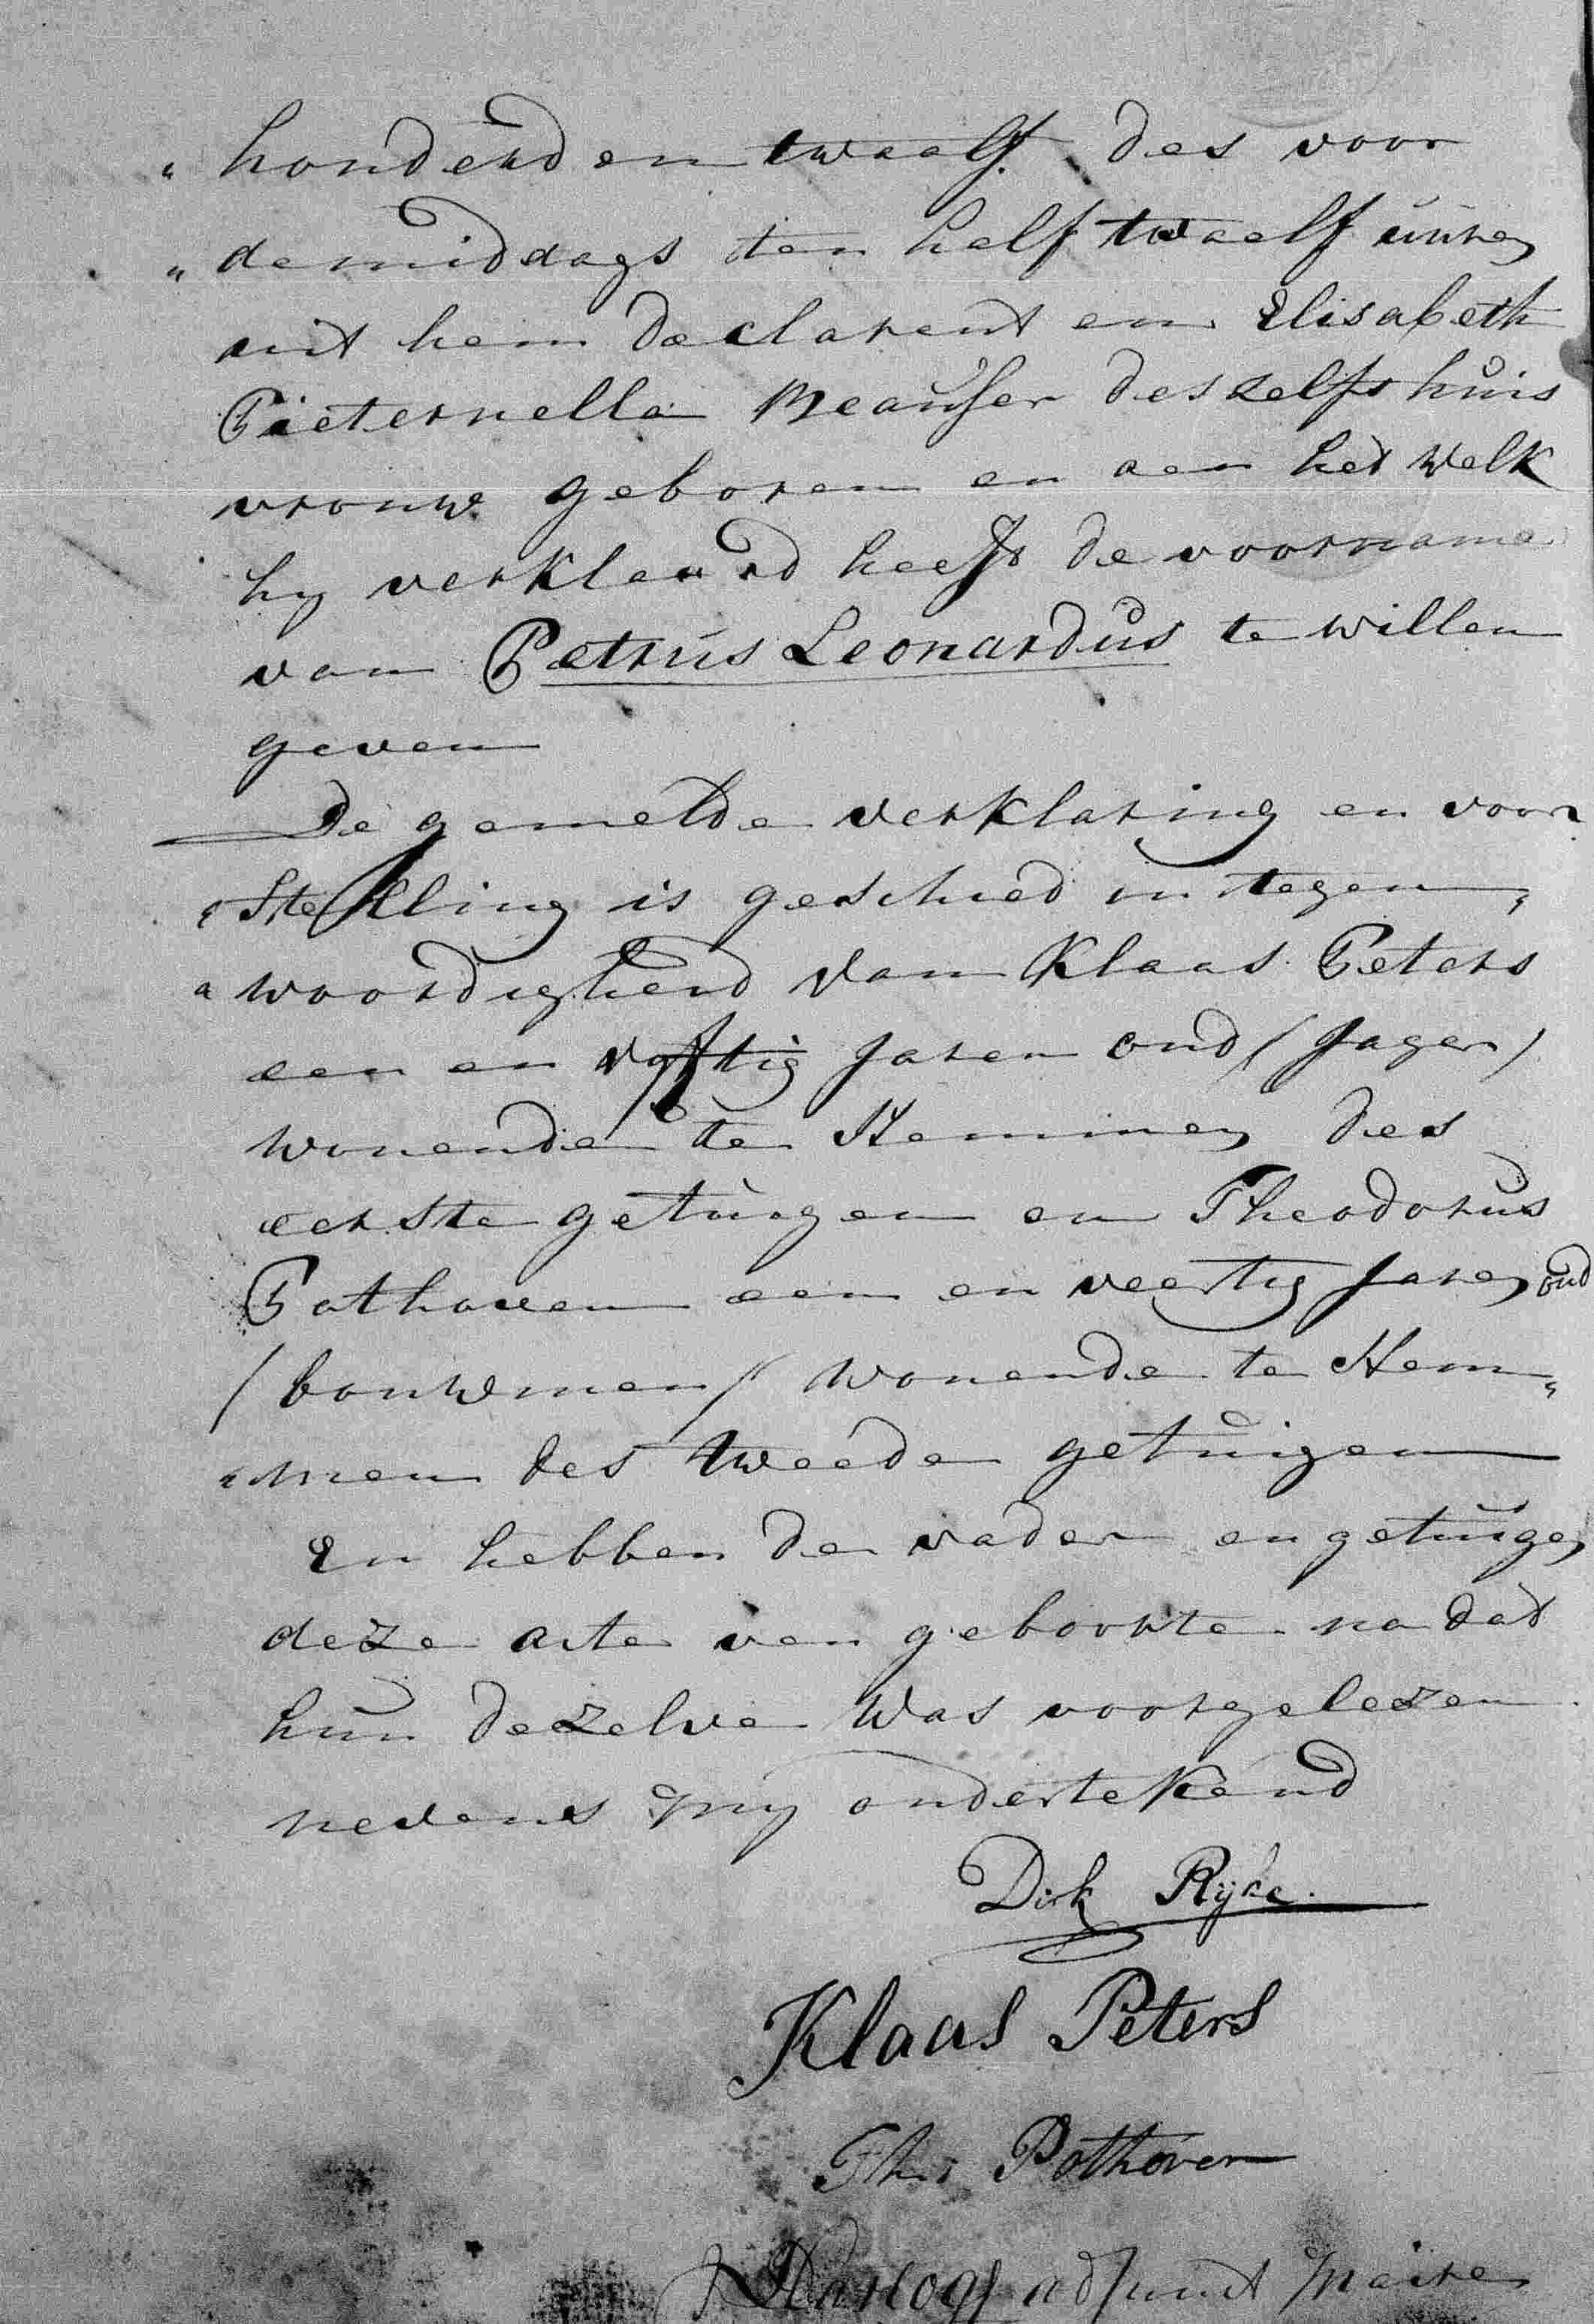 „ honderd en twaalf des voor
„ demiddags ten half twaalf uuren
uit hem declarent en Elisabeth
Pieternella Meauser deszelfs huis
vrouwe geboren en aan het welk
hy verklaard heeft de voorname
van Petrus Leonardus te willen
geven
De gemelde verklaring en voor
„ stelling is geschied in tegen „
„ woordigheid van Klaas Peters
een en vyftig Jaren oud / Jager /
wonende te Hemmen des
eerste getuigen en Theodorus
Pothoven een en veertig Jaren oud
/ bouwman / wonende te Hem „
„ men des tweede getuigen
En hebben de vader en getuigen
deze acte van geboorte na dat
hun dezelve was voorgelezen
nevens my ondertekend
Dirk Ryke.
Klaas Peters
Ths Pothoven
adjunct Maire